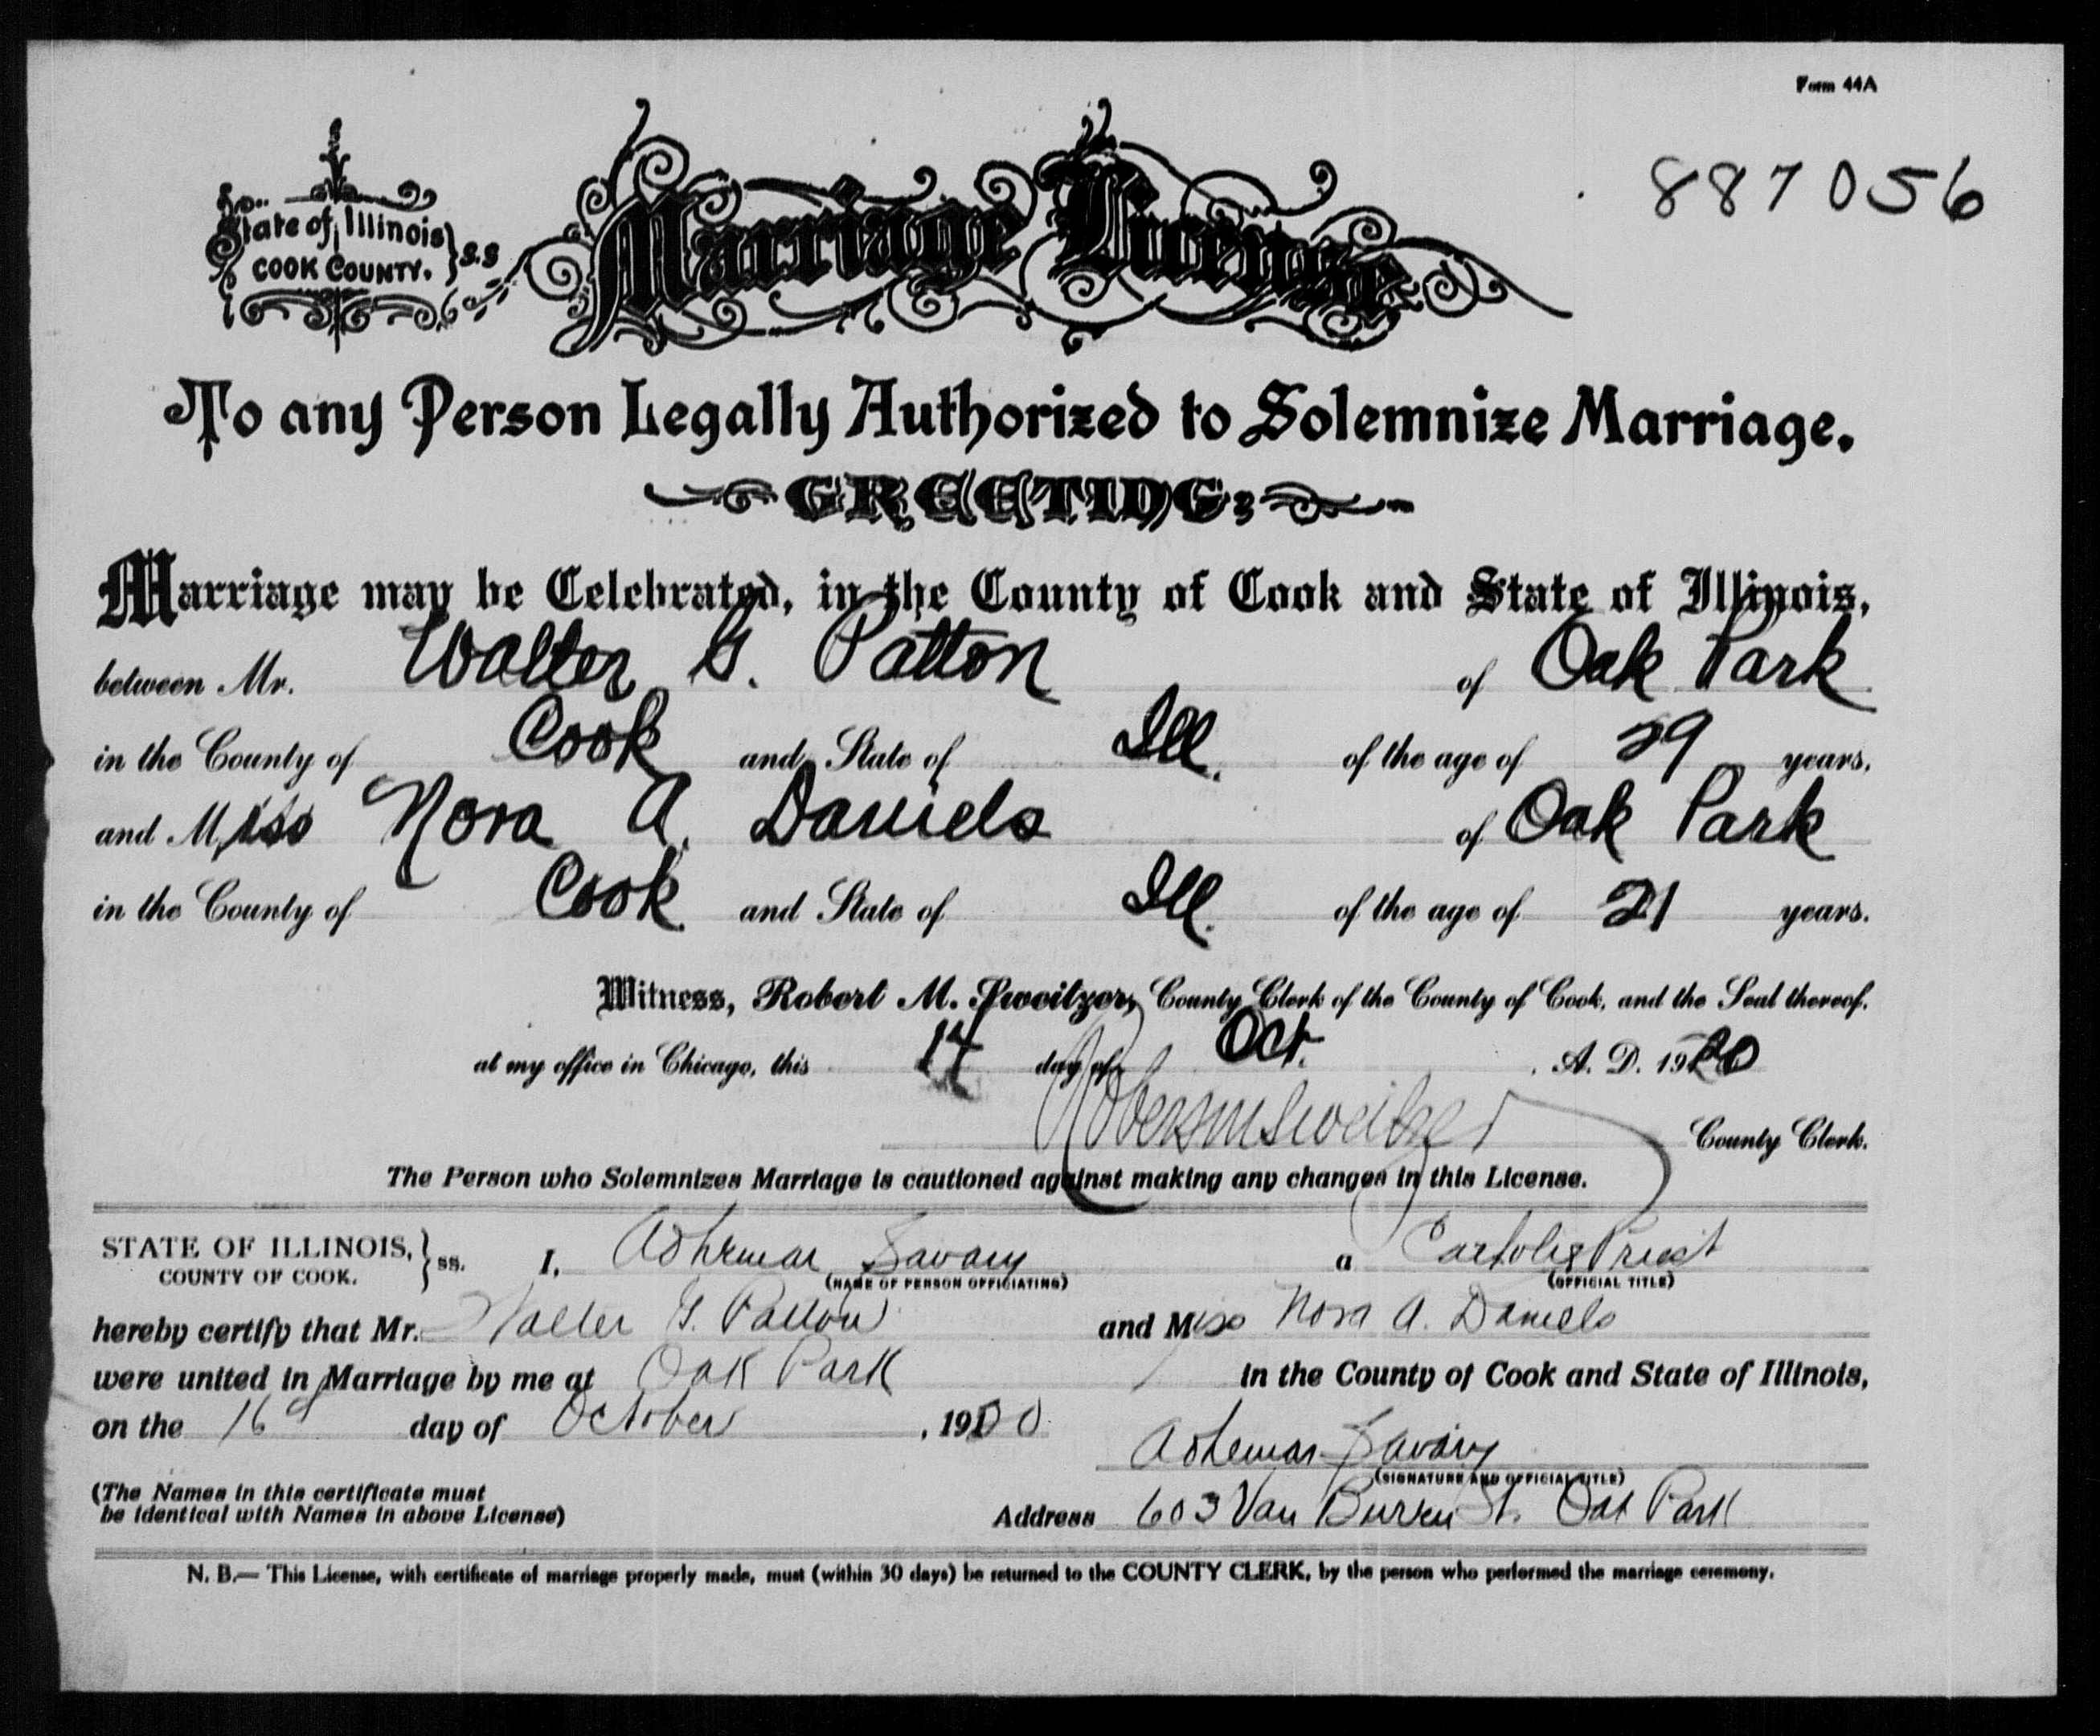 Form 44A
887056
State of Illinois } S.S
COOK COUNTY.
Marriage License
To any Person Legally Authorized to Solemnize Marriage.
GREETING:
Marriage may be Celebrated, in the County of Cook and State of Illinois,
between Mr. Walter G. Patton of Oak Park
in the County of Cook and State of Ill. of the age of 29 years,
and Miss Nora A. Daniels of Oak Park
in the County of Cook and State of Ill. of the age of 21 years.
Witness, Robert M. Sweitzer, County Clerk of the County of Cook, and the Seal thereof.
at my office in Chicago, this 14 day of Oct. A. D. 1920
Robert M Sweitzer County Clerk.
The Person who Solemnizes Marriage is cautioned against making any changes in this License.
STATE OF ILLINOIS, } ss. I, Adhemar Savary a Catholic Priest
COUNTY OF COOK. (NAME OF PERSON OFFICIATING) (OFFICIAL TITLE)
hereby certify that Mr. Walter G. Patton and Miss Nora A. Daniels
were united in Marriage by me at Oak Park in the County of Cook and State of Illinois,
on the 16 day of October, 1920
Adhemar Savary
(SIGNATURE AND OFFICIAL TITLE)
(The Names in this certificate must
be identical with Names in above License)
Address 603 Van Buren St. Oak Park
N. B.— This License, with certificate of marriage properly made, must (within 30 days) be returned to the COUNTY CLERK, by the person who performed the marriage ceremony.